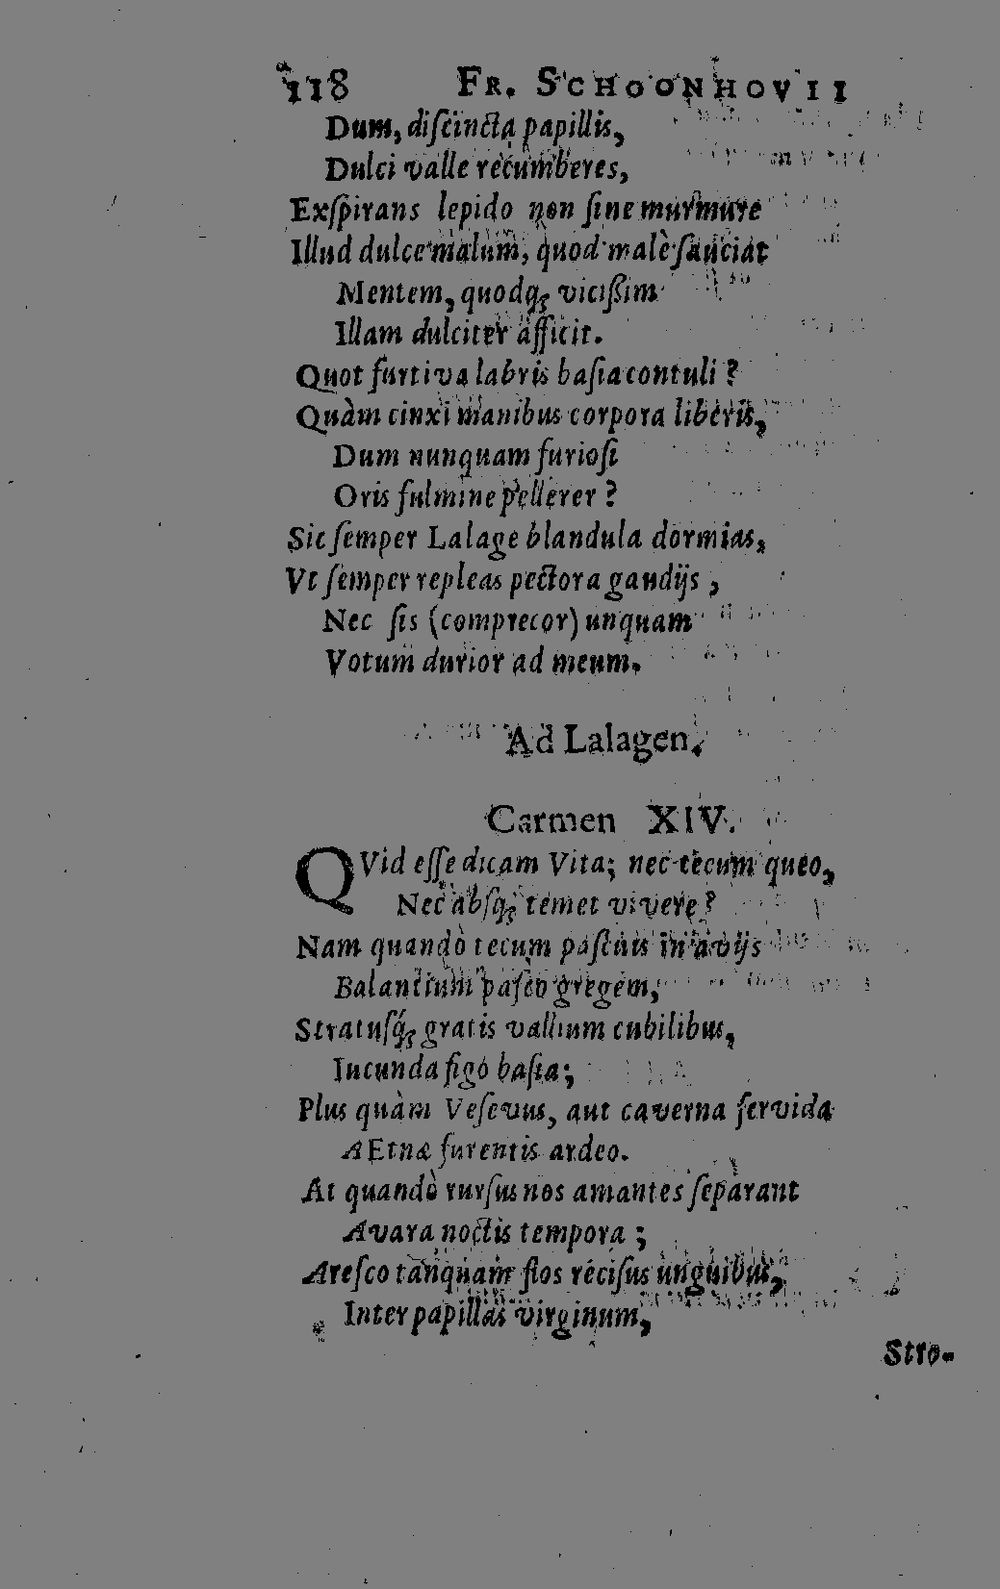 118 FR. SCHOONHOVII
Dum, diſcincta papillis,
Dulci valle recumberes,
Exſpirans lepido non ſine murmure
Illud dulce malum, quod malè ſauciat
Mentem, quodq́ꝫ vicißim
Illam dulciter afficit.
Quot furtiva labris baſia contuli ?
Quàm cinxi manibus corpora liberis,
Dum nunquam furioſi
Oris fulmine pellerer ?
Sic ſemper Lalage blandula dormias,
Vt ſemper repleas pectora gaudijs ,
Nec ſis (comprecor) unquam
Votum durior ad meum.
Ad Lalagen.
Carmen XIV.
QVid eſſe dicam Vita; nec tecum queo,
Nec abſq́ꝫ temet vivere ?
Nam quandò tecum paſcuis in avijs
Balantium paſco gregem,
Stratuſq́ꝫ gratis vallium cubilibus,
Iucunda figo baſia;
Plus quàm Veſevus, aut caverna fervida
AEtnæ furentis ardeo.
At quandò rurſus nos amantes ſeparant
Avara noctis tempora ;
Areſco tanquam flos reciſus unguibus,
Inter papillas virginum,
Stro-